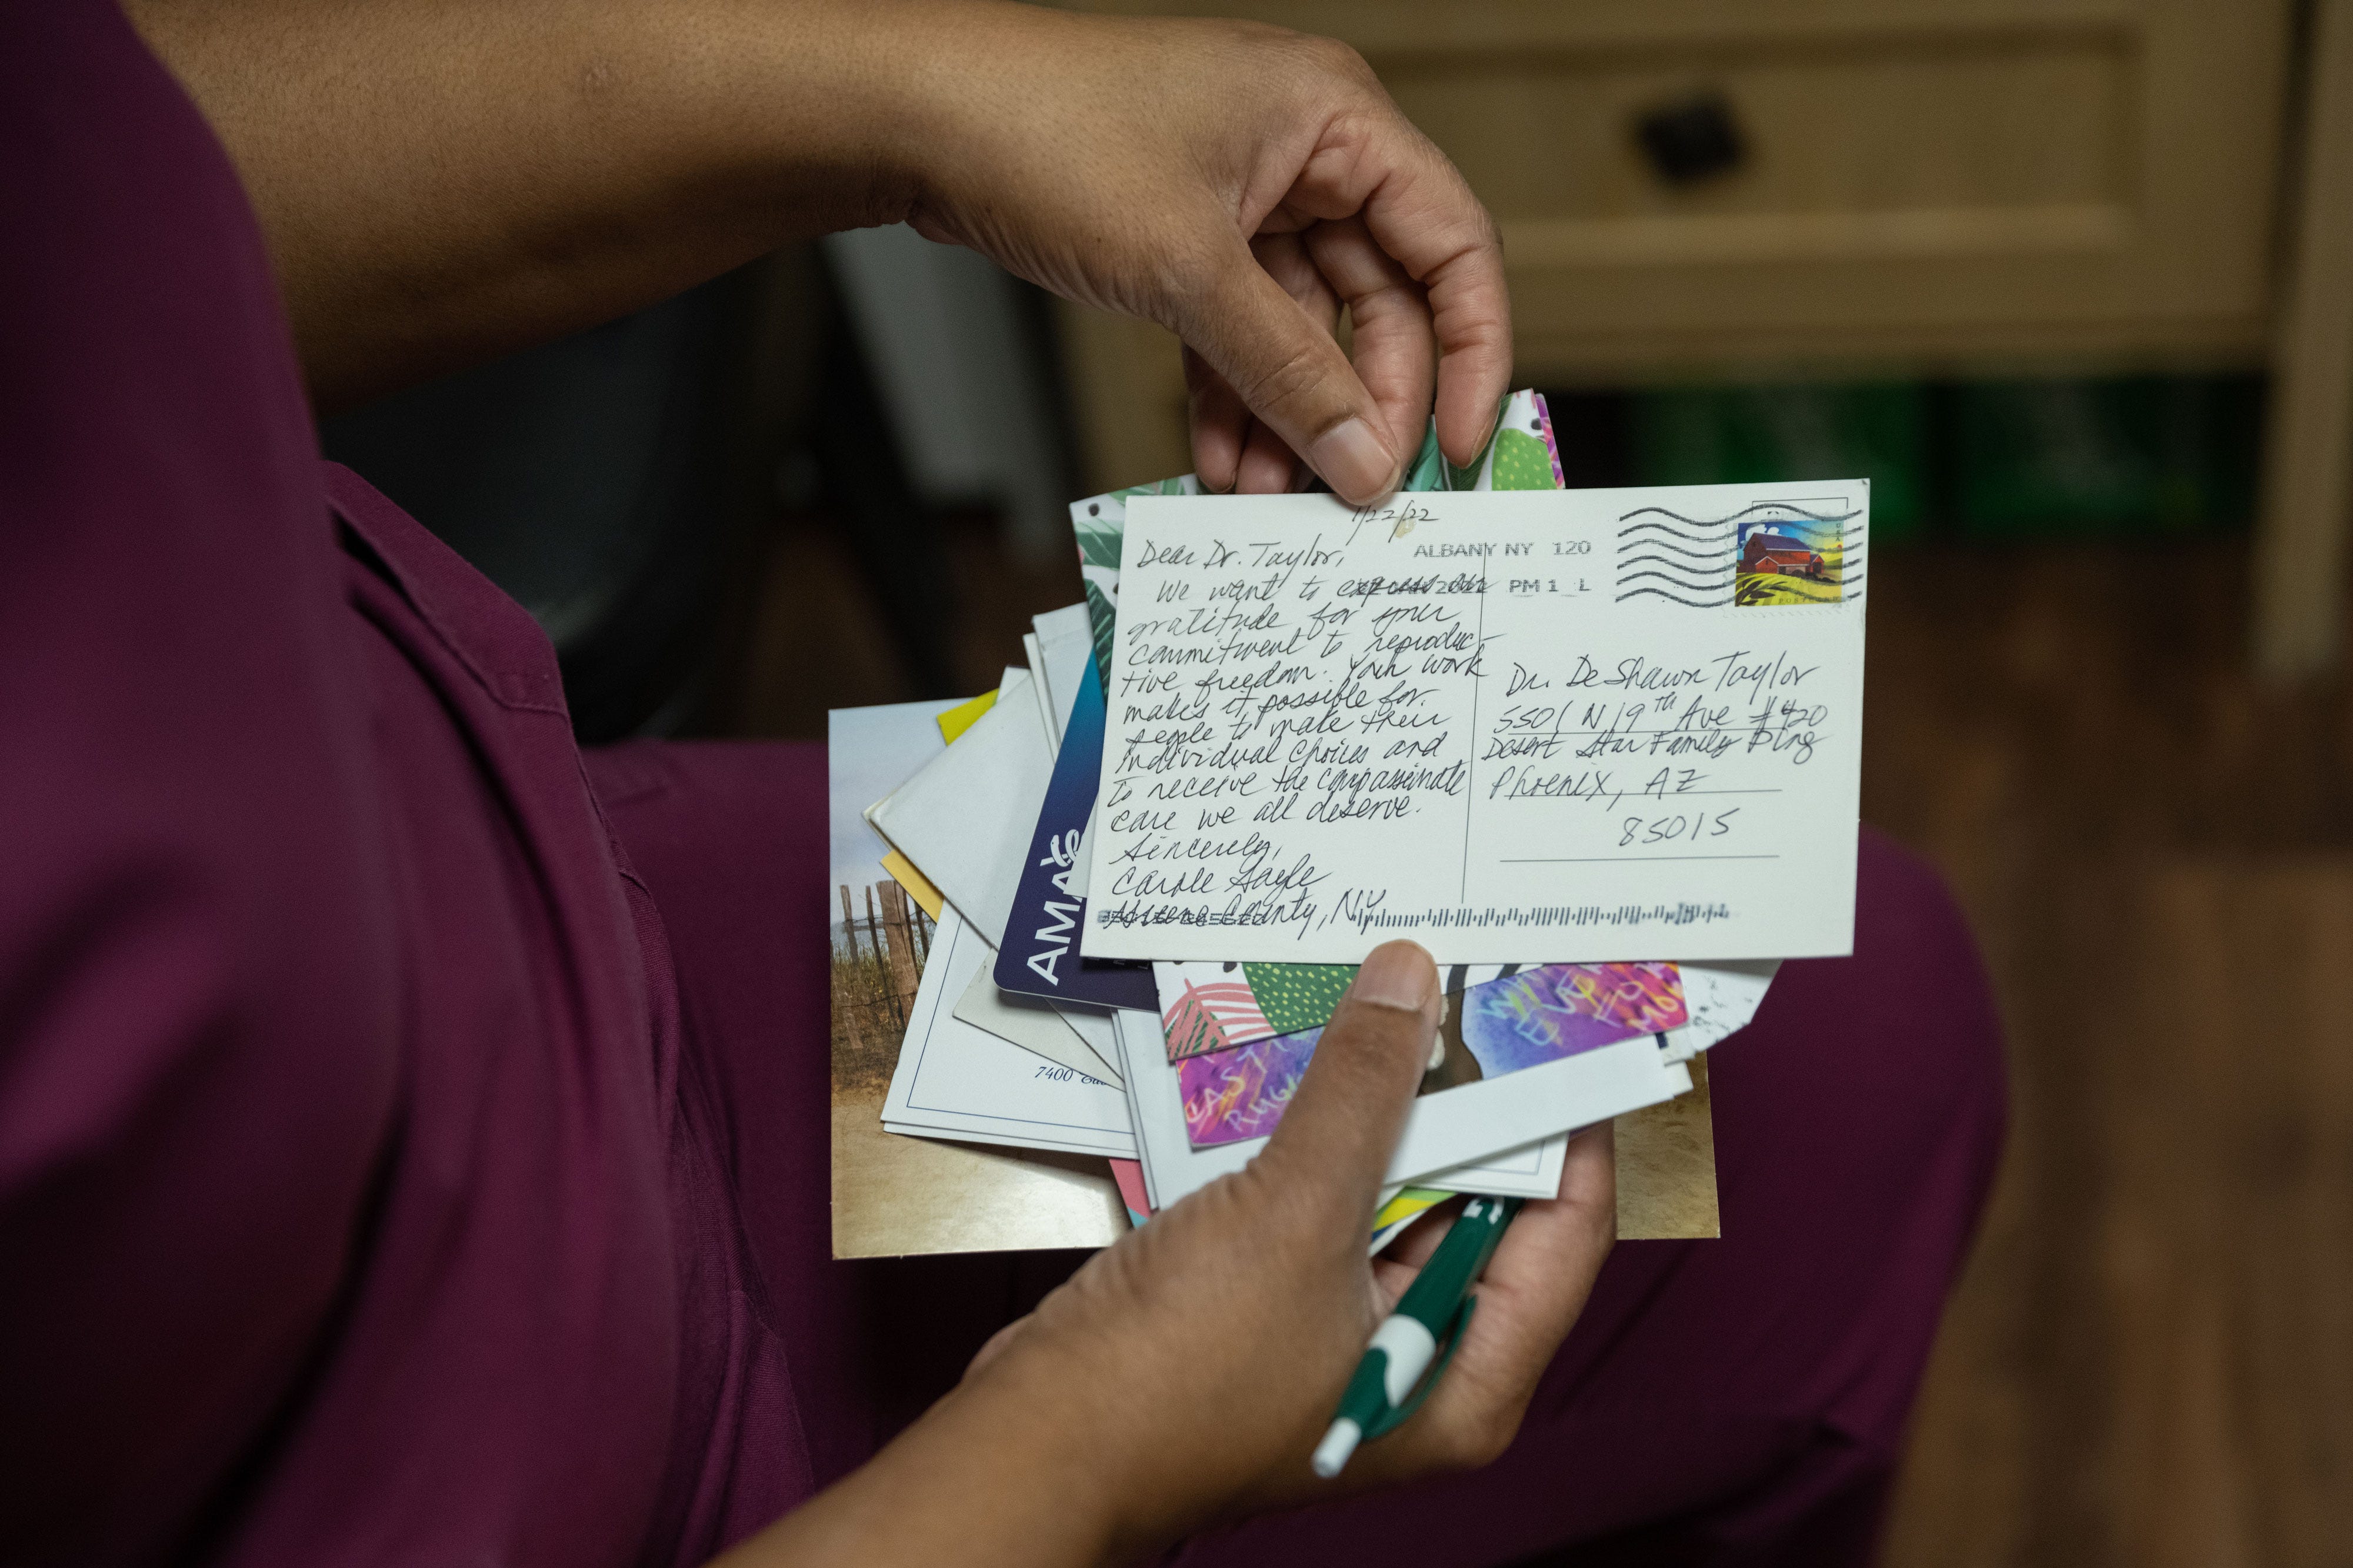 1/22/22
Dear Dr. Taylor,
We want to express our
gratitude for your
commitment to reproduc-
tive freedom. Your work
makes it possible for
people to make their
individual choices and
to receive the compassionate
care we all deserve.
Sincerely,
Carole
County, NY
ALBANY NY 120
2022 PM 1 L
Dr. DeShawn Taylor
5501 N 19th Ave #420
Desert Star Family Plng
Phoenix, AZ
85015
AMA
7400